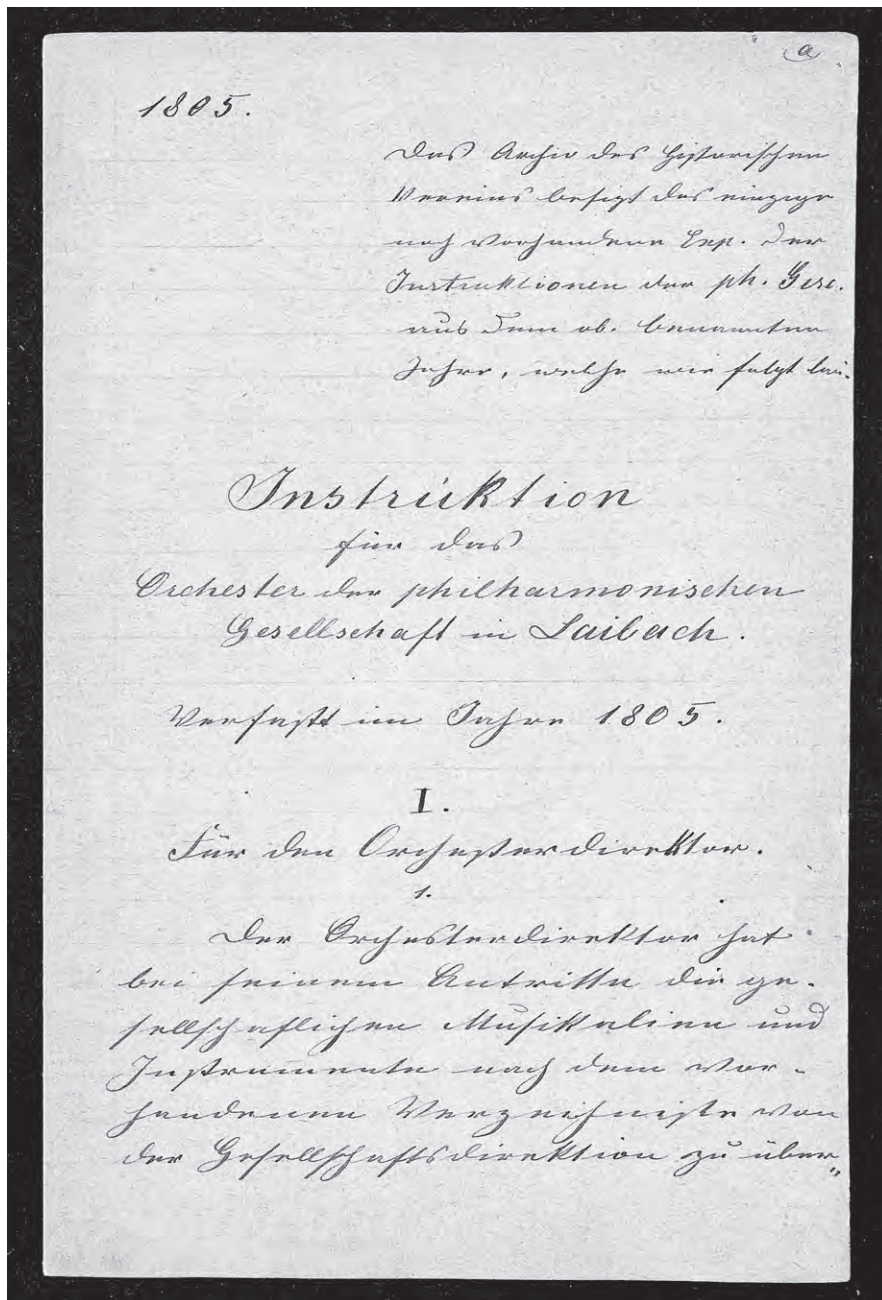 a
1805.
Das Archiv des historischen
Vereins besizt das einzige
noch vorhandene Exp. der
Instruktionen der ph. Gese.
aus dem ob. benannten
Jahre, welche wie folgt lau.
Instruktion
für das
Orchester der philharmonischen
Gesellschaft in Laibach.
Verfaßt im Jahre 1805.
I.
Für den Orchesterdirektor.
1.
Der Orchesterdirektor hat
bei seinem Antritte die ge-
sellschaftlichen Musikalien und
Instrumente nach dem vor-
handenen Verzeichniße von
der Gesellschaftsdirektion zu über„